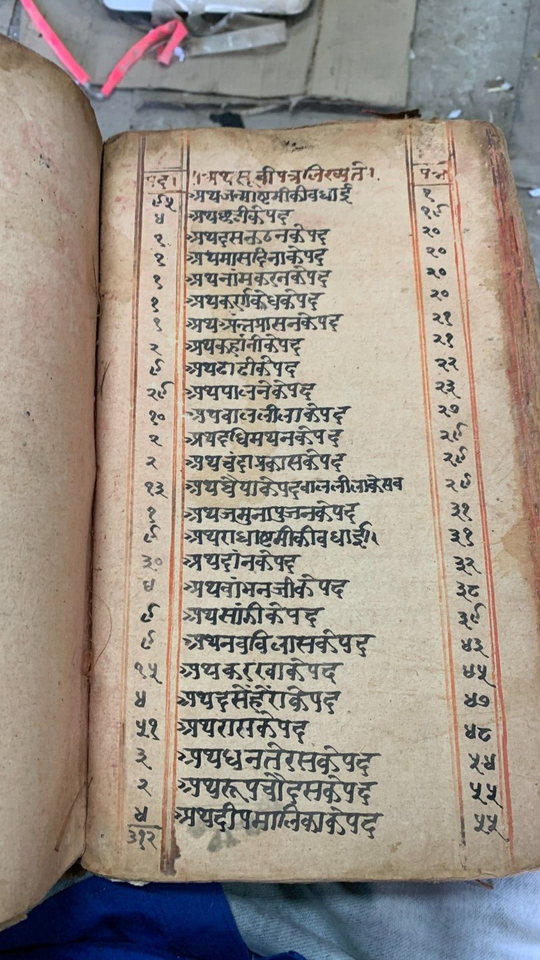 पद । ॥अथसूचीपत्रलिख्यते। पत्र
९५ अथजन्माष्टमीकीवधाई १
४ अथछठीकेपद १९
१ अथदसूठनकेपद २०
१ अथमासदिनाकेपद २०
१ अथनांमकरनकेपद २०
१ अथकर्णवेधकेपद २०
१ अथअंनप्रासनकेपद २१
२ अथकहांनीकेपद २१
९ अथढाढीकेपद २२
२९ अथपालनेकेपद २३
१० अथवाललीलाकेपद २७
२ अथदधिमथनकेपद २९
२ अथचंदाप्रकासकेपद २९
१३ अथवैयाकेपदवाललीलाकेसव २९
१ अथजमुनापुजनकेपद ३१
९ अथराधाष्टमीकीवधाई।। ३१
३० अथदांनकेपद ३२
४ अथवांमनजीकेपद ३८
९ अथसांझीकेपद ३९
९ अथनवविलासकेपद ४३
१५ अथकरखाकेपद ४५
४ अथदसेंहेराकेपद ४७
५१ अथरासकेपद ४८
३ अथधनतेरसकेपद ५४
२ अथरूपचौदसकेपद ५५
४ अथदीपमालिकाकेपद ५५
३१२